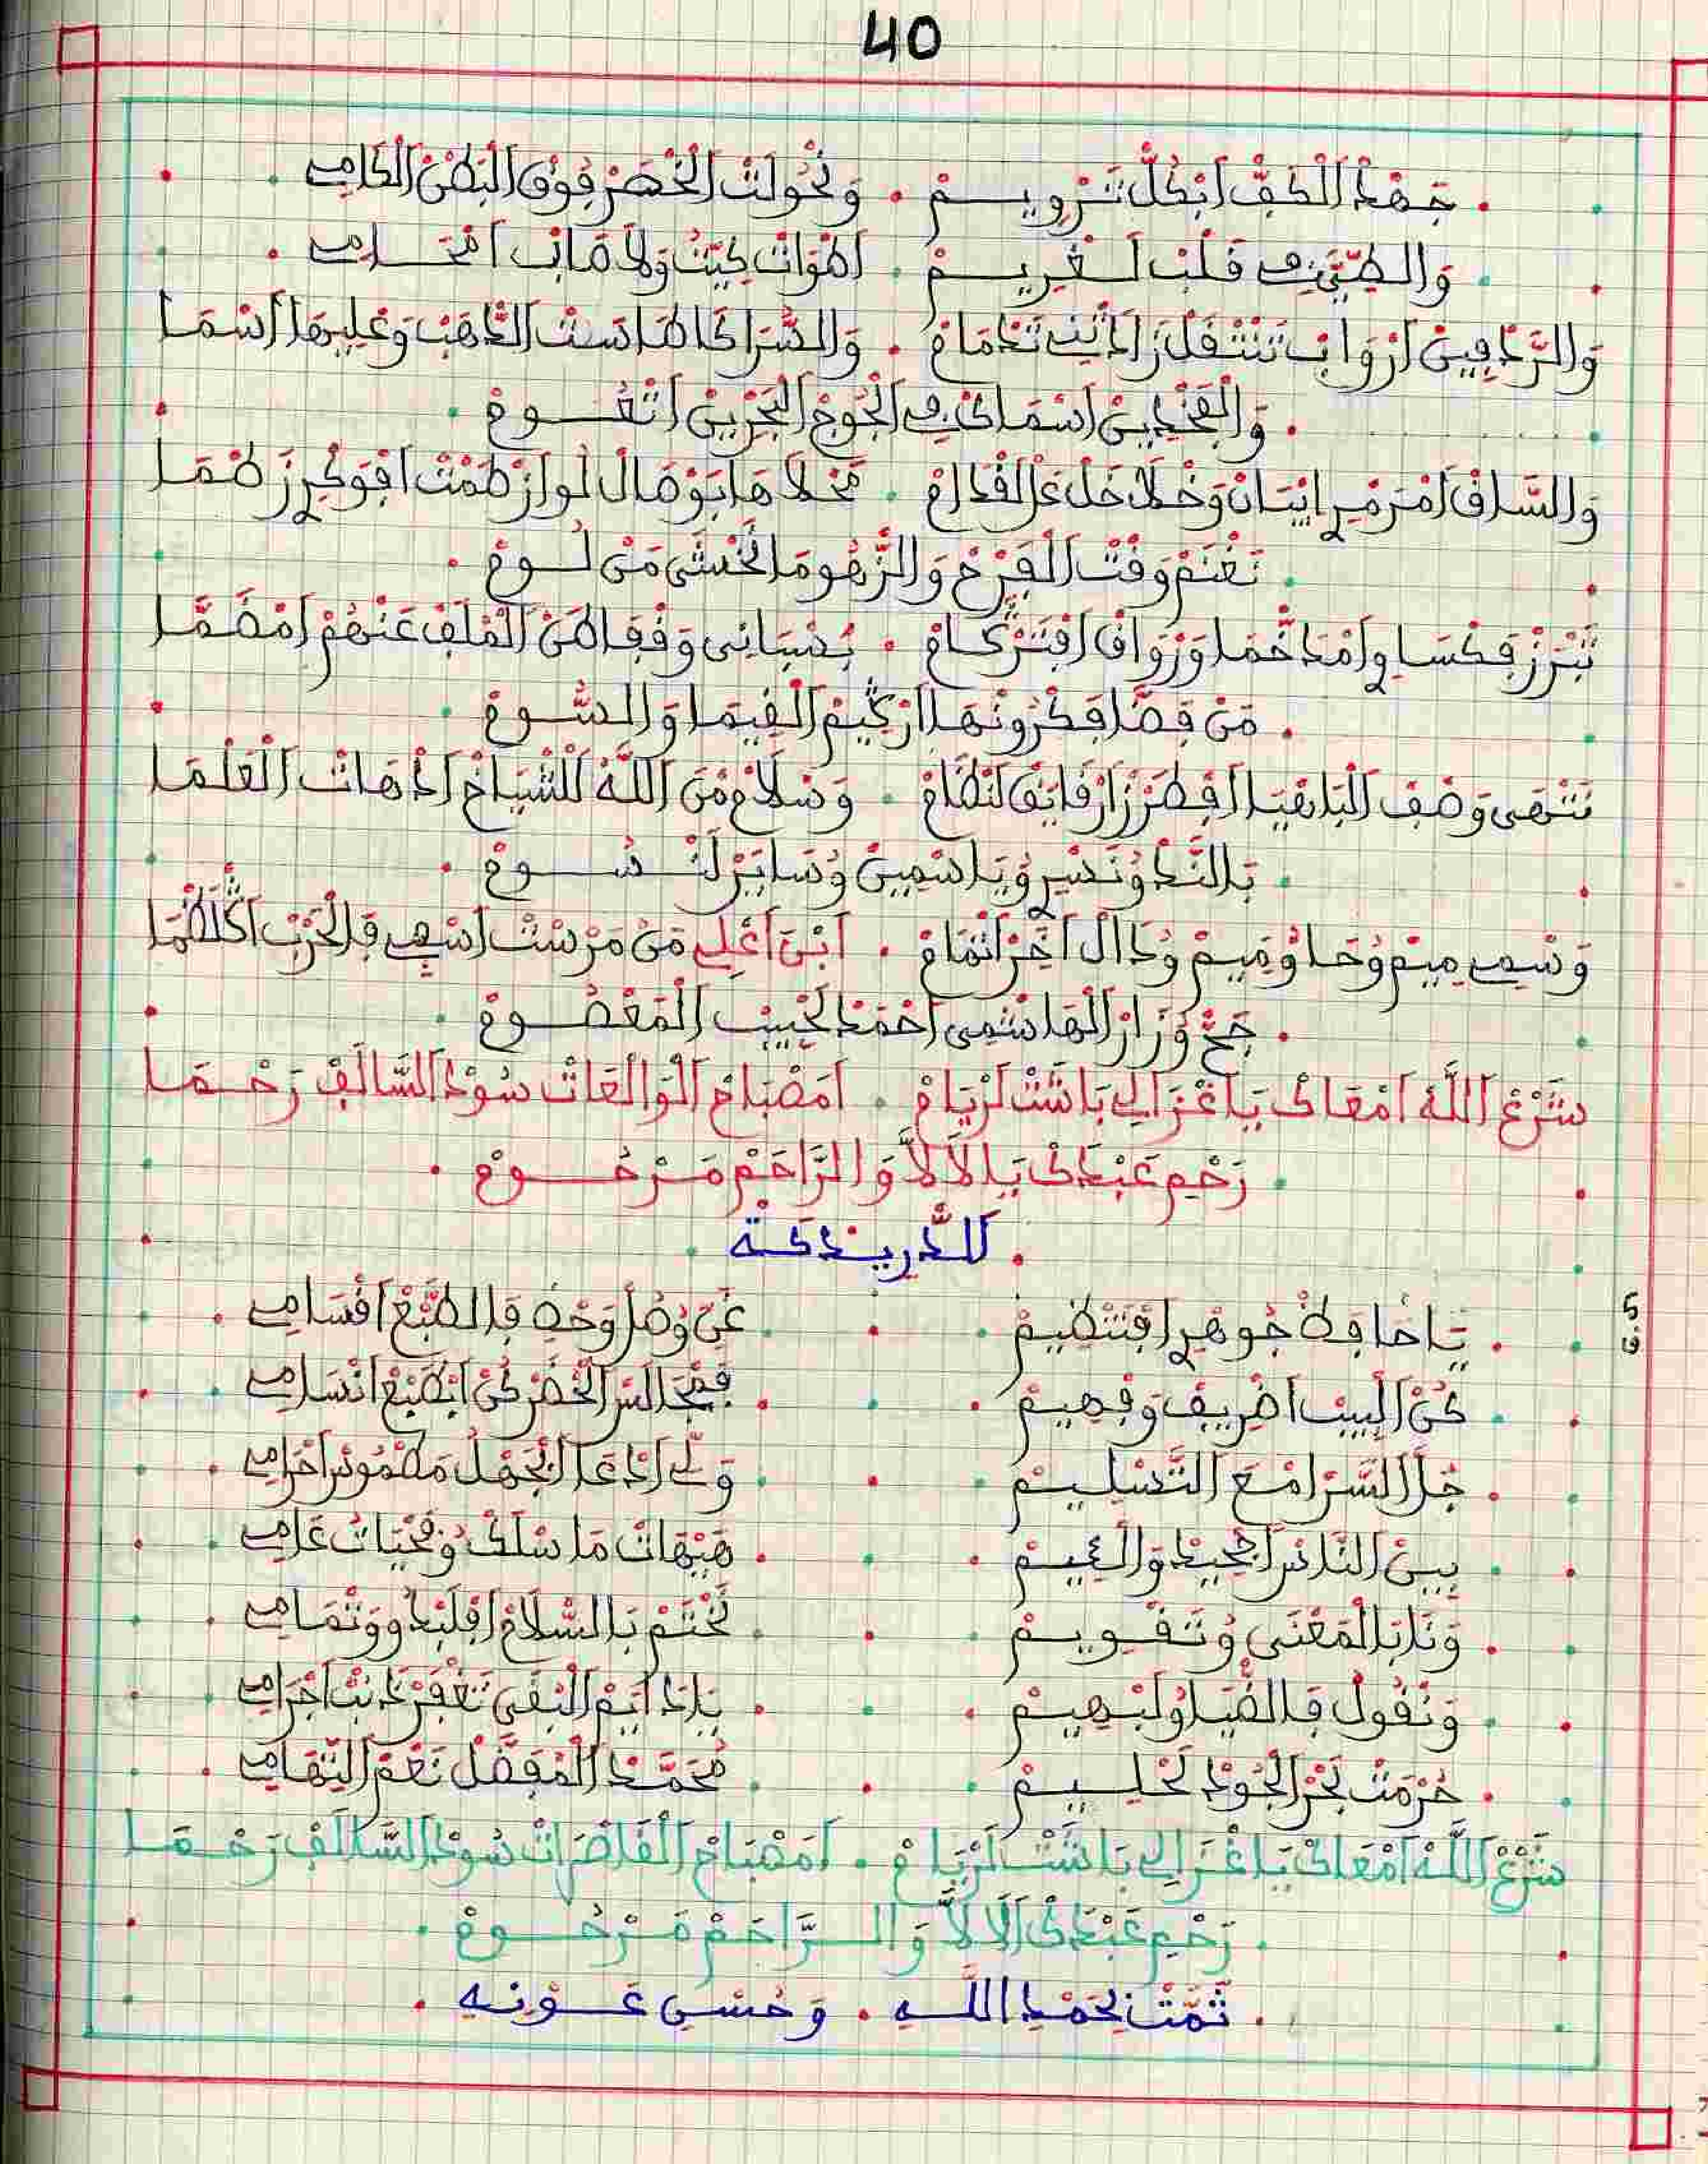 40
جهد الكف ابكل ترويم . ونحولت الخصر فوق البطن الكامي
والطي في قلب لغريم . اطوات كيت ولا صاب امحامي
والردفين ارواب تنتقل زادني تخمام . والسرا كاطاست الذهب وعليها اسما
والفخدين اسماك في الجوج البحرين اتعوم
والساق امرمري ايبان وخلاخل عل لقدام . محلاها بوصال لو ارطمت افوكري رطما
نغنم وقت الفرح والزهو ما نخشى من لوم
تبرز فكساوي امدخما ورواق افتركام . بصباني وقفاطن الملف عنهم امضما
من قصا فكرونها اركيم القيما والسوم
نتهى وصف الباهيا افطرز ارقايق لنظام . وسلام من الله للشياخ ادهات العلما
بالند ونسري وياسمين وساير لنسوم
وسمي ميم وحا وميم ودال اخر انمام . ابن اعلي من مرست اسفي فالحرب
حج وزار الهاشمي احمد لحبيب المعصوم
شرع الله امعاك يا غزالي باشت لريام . امصباح الوالعات سود السالف رحما
رحم عبدك يا لالا والراحم مرحوم
الدريدكة
يا حافظ جوهري افتنظيم . غني وصل وحضه فالطبع اقسامي
كن البيب اضريف وفهيم . فمجالس الخضر كن ابطبع انسامي
خل السر امع التسليم . ولي ادعا بجهل مطموس احرامي
بين الناس اجحيد والئيم . هيهات ما سلك وفحيات عامي
ونا بالمعنى وتقويم . نختم بالسلام افلبدو وتمامي
ونقول فالضيا ولبهيم . يا دايم البقى تغفر دنب اجرامي
حرمت بحر الجود لحليم . محمد المفضل نعم التهامي
شرع الله امعاك يا غزالي باشت لريام . امصباح القاصرات سود السالف رحما
رحم عبدك الالا والراحم مرحوم
تمت بحمد الله . وحسن عونه